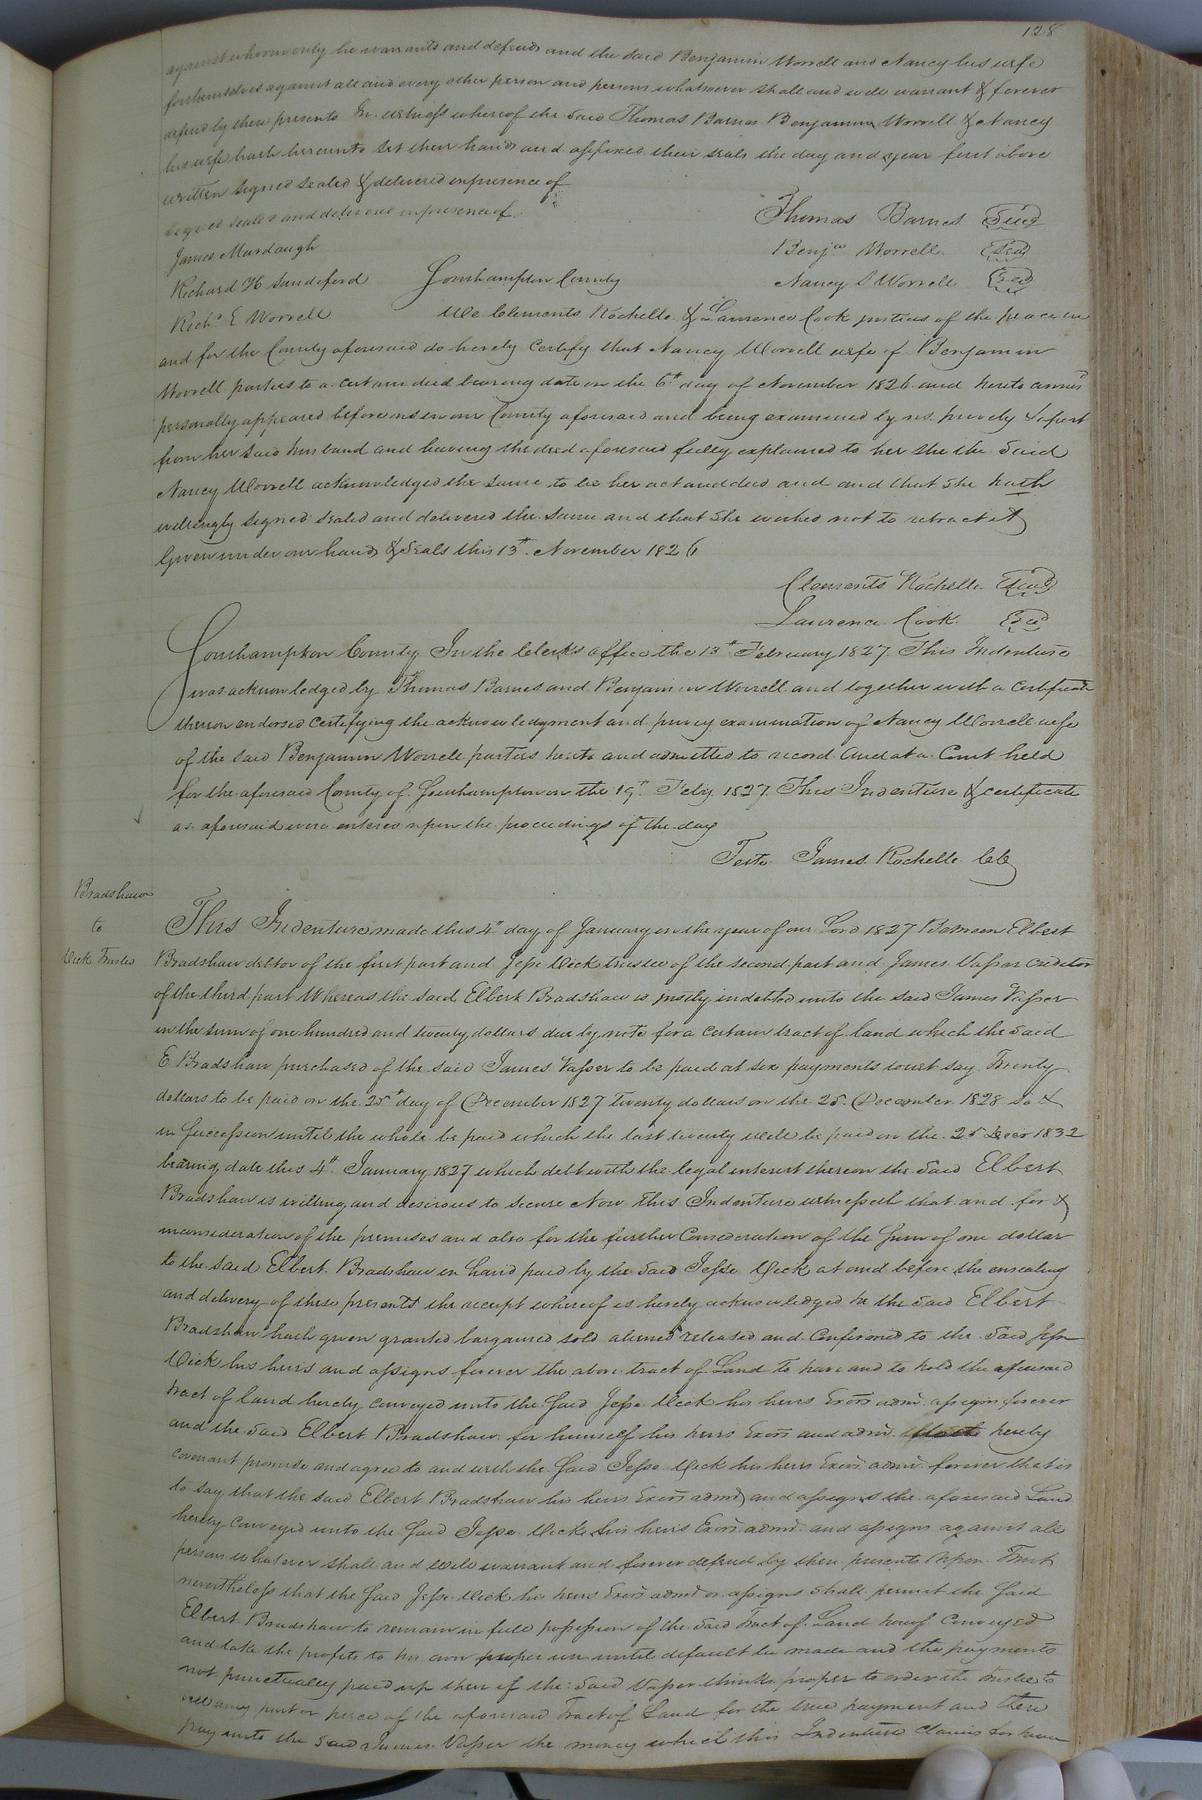 128
against whom only he warrants and defends and the said Benjamin Worrell and Nancy his wife
for themselves against all and every other person and persons whatsoever shall and will warrant & forever
defend by these presents In witness whereof the said Thomas Barnes Benjamin Worrell & Nancy
his wife hath hereunto set their hands and affixed their seals the day and year first above
written signed sealed & delivered in presence of
signed sealed and delivered in presence of
Thomas Barnes Seal
James Murdaugh
Benjn Worrell Seal
Richard H Sandeford Southampton County
Nancy S Worrell Seal
Richd E Worrell We Clements Rochelle & Laurence Cook justices of the peace in
and for the County aforesaid do hereby certify that Nancy Worrell wife of Benjamin
Worrell parties to a certain deed bearing date on the 6th day of November 1826 and hereto annex'd
personally appeared before us in our County aforesaid and being examined by us privily & apart
from her said husband and having the deed aforesaid fully explained to her she the said
Nancy Worrell acknowledged the same to be her act and deed and and that she hath
willingly signed sealed and delivered the same and that she wished not to retract it
Given under our hands & seals this 13th November 1826
Clements Rochelle Seal
Laurence Cook Seal
Southampton County In the Clerks office the 13th February 1827 This Indenture
was acknowledged by Thomas Barnes and Benjamin Worrell and together with a certificate
thereon endorsed certifying the acknowledgment and privy examination of Nancy Worrell wife
of the said Benjamin Worrell parties hereto and admitted to record And at a Court held
for the aforesaid County of Southampton on the 19th Feby 1827 This Indenture & certificate
as aforesaid were entered upon the proceedings of the day
Teste James Rochelle Clk
Bradshaw
to
Vick Trustee
This Indenture made this 4th day of January in the year of our Lord 1827 Between Elbert
Bradshaw debtor of the first part and Jesse Vick trustee of the second part and James Vasser creditor
of the third part Whereas the said Elbert Bradshaw is justly indebted unto the said James Vasser
in the sum of one hundred and twenty dollars due by note for a certain tract of land which the said
E Bradshaw purchased of the said James Vasser to be paid at six payments to wit say Twenty
dollars to be paid on the 25th day of December 1827 twenty dollars on the 25 December 1828 so &
in succession until the whole be paid which the last twenty will be paid on the 25 Decr 1832
bearing date this 4th January 1827 which debt with the legal interest thereon the said Elbert
Bradshaw is willing and desirous to secure Now This Indenture witnesseth that and for &
in consideration of the premises and also for the further Consideration of the sum of one dollar
to the said Elbert Bradshaw in hand paid by the said Jesse Vick at and before the ensealing
and delivery of these presents the receipt whereof is hereby acknowledged he the said Elbert
Bradshaw hath given granted bargained sold aliened released and Confirmed to the said Jesse
Vick his heirs and assigns forever the above tract of Land To have and to hold the aforesaid
tract of land hereby conveyed unto the said Jesse Vick his heirs Exors admr assigns forever
and the said Elbert Bradshaw for himself his heirs Exors and admr hereby
covenant promise and agree to and with the said Jesse Vick his heirs Exors admr forever that is
to say that the said Elbert Bradshaw his heirs Exors admr and assigns the aforesaid Land
hereby conveyed unto the said Jesse Vick his heirs Exors admr and assigns against all
persons whatever shall and will warrant and forever defend by these presents Upon Trust
nevertheless that the said Jesse Vick his heirs Exors admr or assigns shall permit the said
Elbert Bradshaw to remain in full possession of the said Tract of Land hereof Conveyed
and take the profits to his own proper use until default be made and the payments
not punctually paid up then if the said Vasser thinks proper to order the trustee to
sell any part or piece of the aforesaid Tract of Land for the true payment and then
pay unto the said James Vasser the money which this Indenture claims for